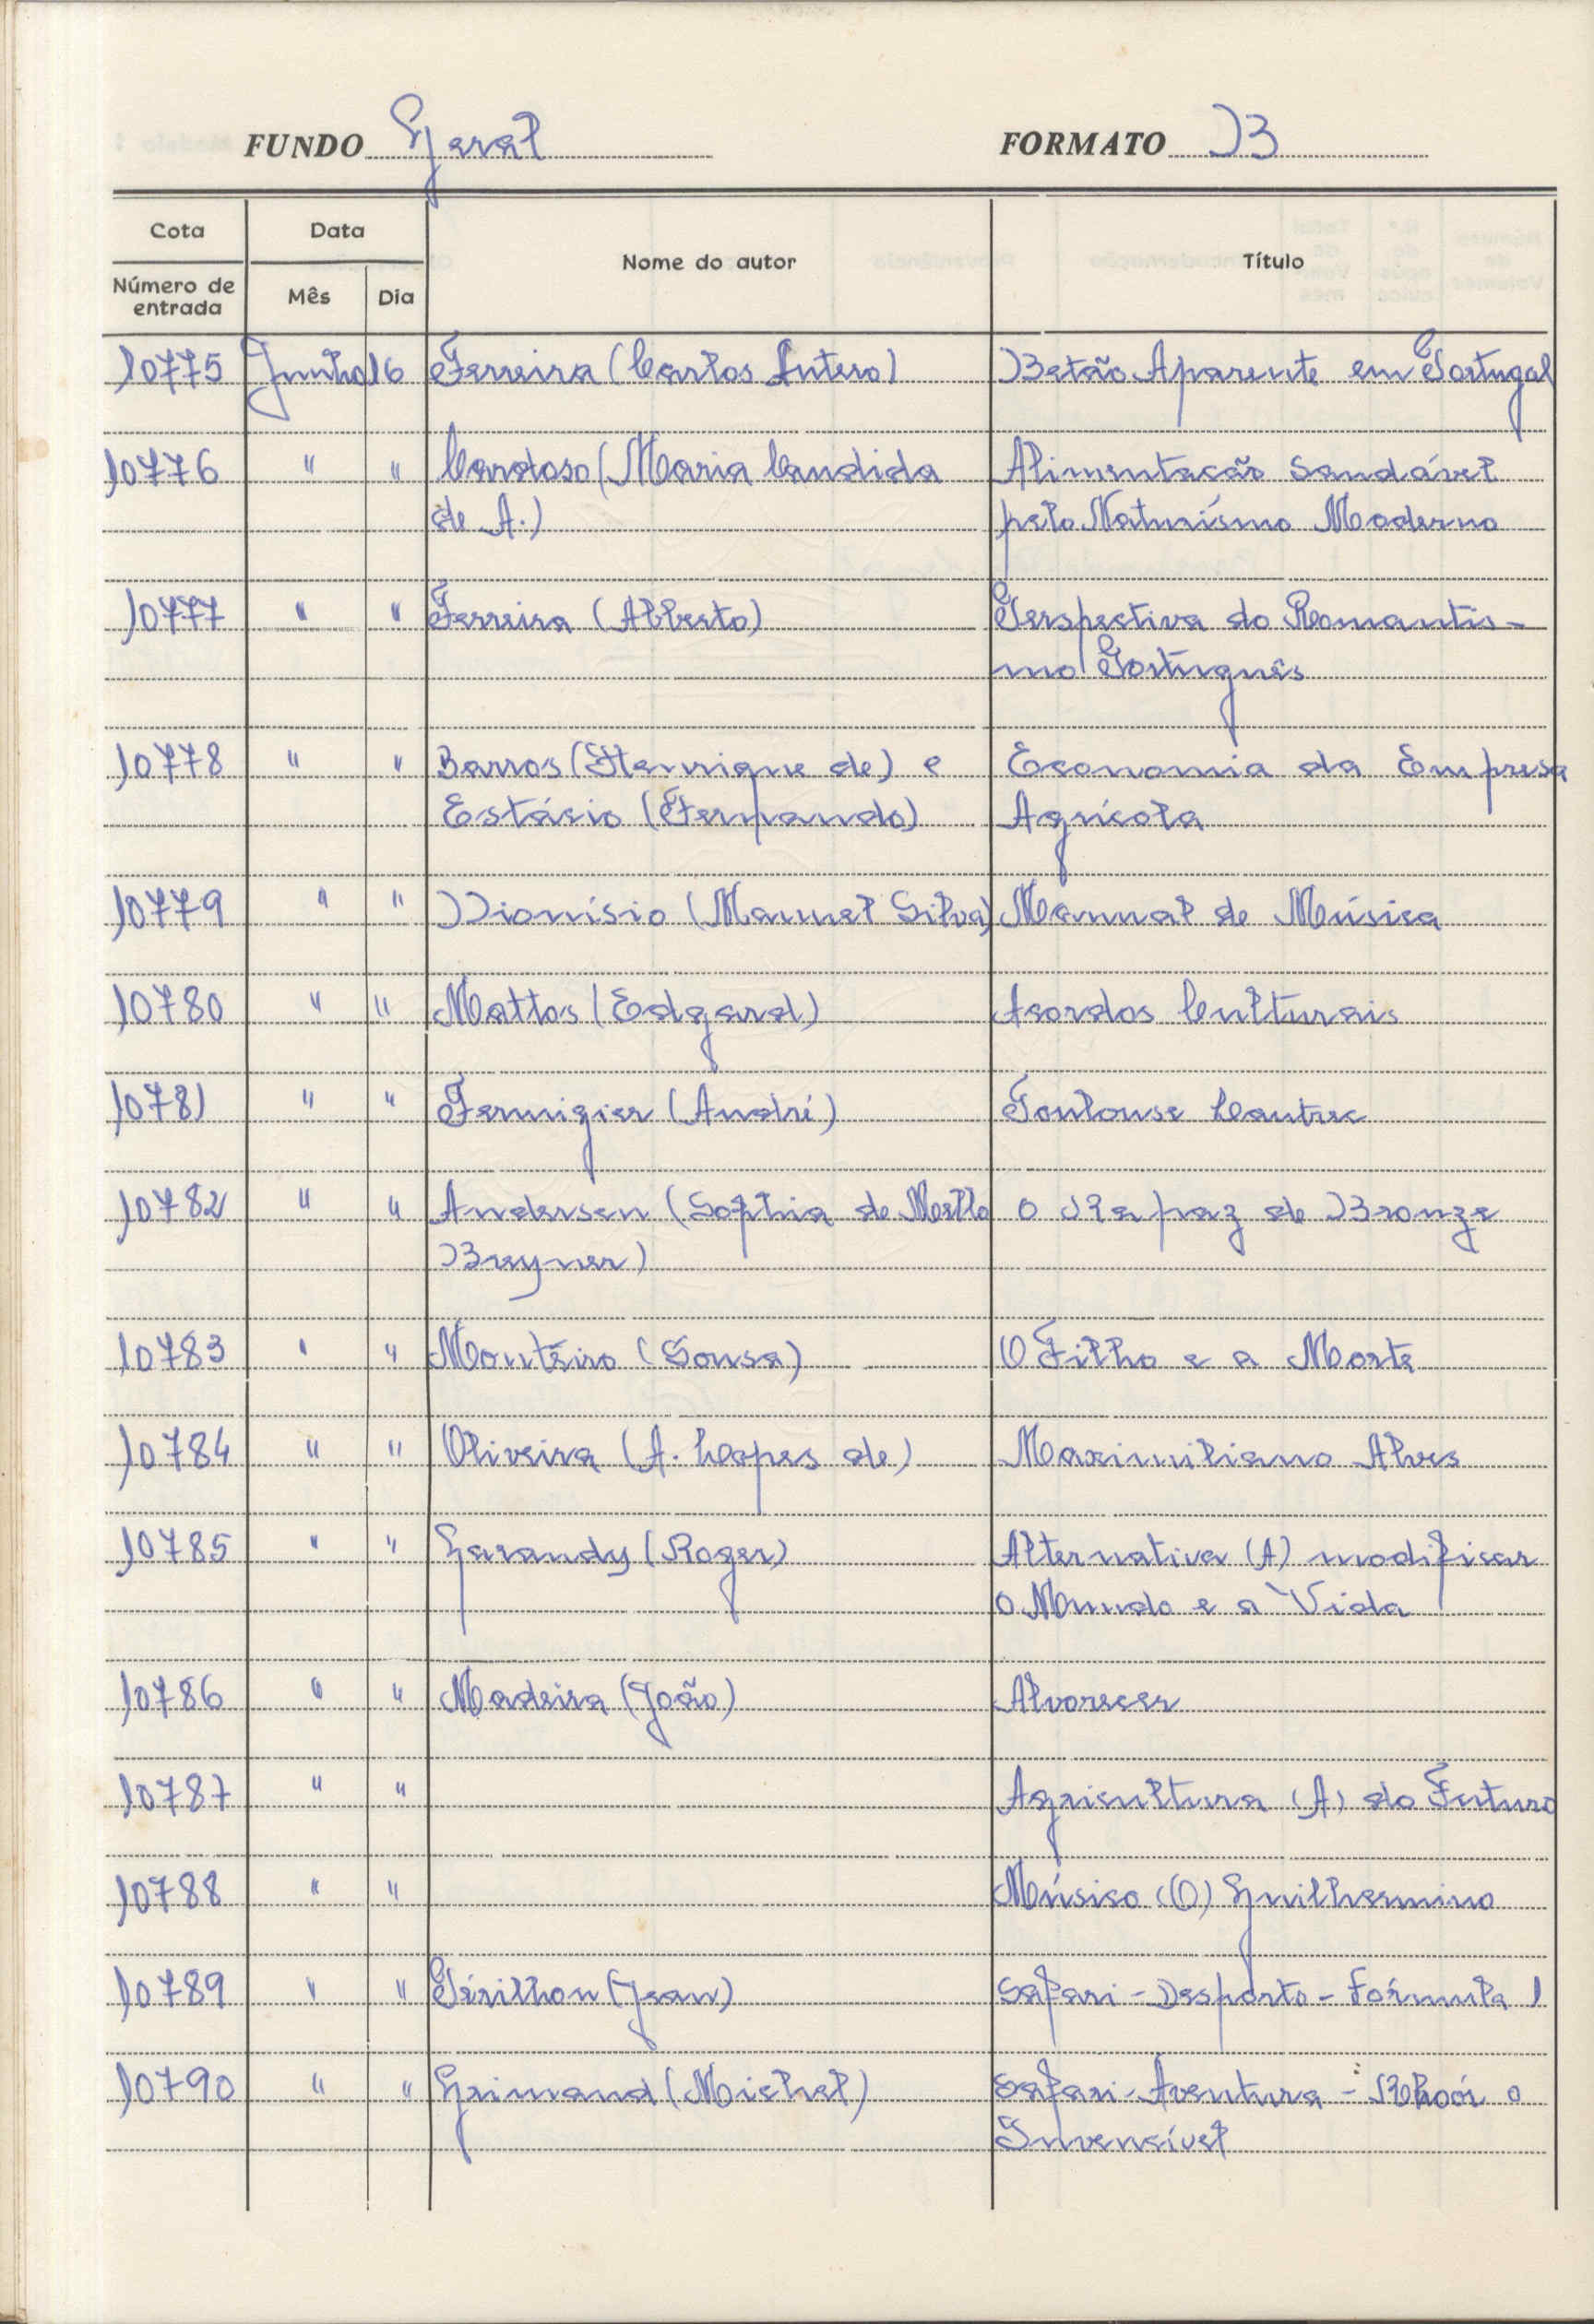 FUNDO Geral FORMATO B
Cota Data Nome do autor Título
Número de entrada Mês Dia
10775 Junho 16 Ferreira (Carlos Antero) Betão Aparente em Portugal
10776 " " Cardoso (Maria Candida Alimentação Saudável
de A.) pelo Naturísmo Moderno
10777 " " Ferreira (Alberto) Perspectiva do Romantis-
mo Português
10778 " " Barros (Henrique de) e Economia da Empresa
Estácio (Fernando) Agrícola
10779 " " Dionísio (Manuel Silva) Manual de Música
10780 " " Mattos (Edgard) Acordos Culturais
10781 " " Fermigier (André) Toulouse Lautrec
10782 " " Andersen (Sophia de Mello O Rapaz de Bronze
Breyner)
10783 " " Monteiro (Sousa) O Filho e a Morte
10784 " " Oliveira (A. Lopes de) Maximiliano Alves
10785 " " Garaudy (Roger) Alternativa (A) modificar
o Mundo e a Vida
10786 " " Madeira (João) Alvorecer
10787 " " Agricultura (A) do Futuro
10788 " " Músico (O) Guilhermino
10789 " " Périlhon (Jean) Safari - Desporto - Fórmula 1
10790 " " Grimaud (Michel) Safari - Aventura - o
Invensível